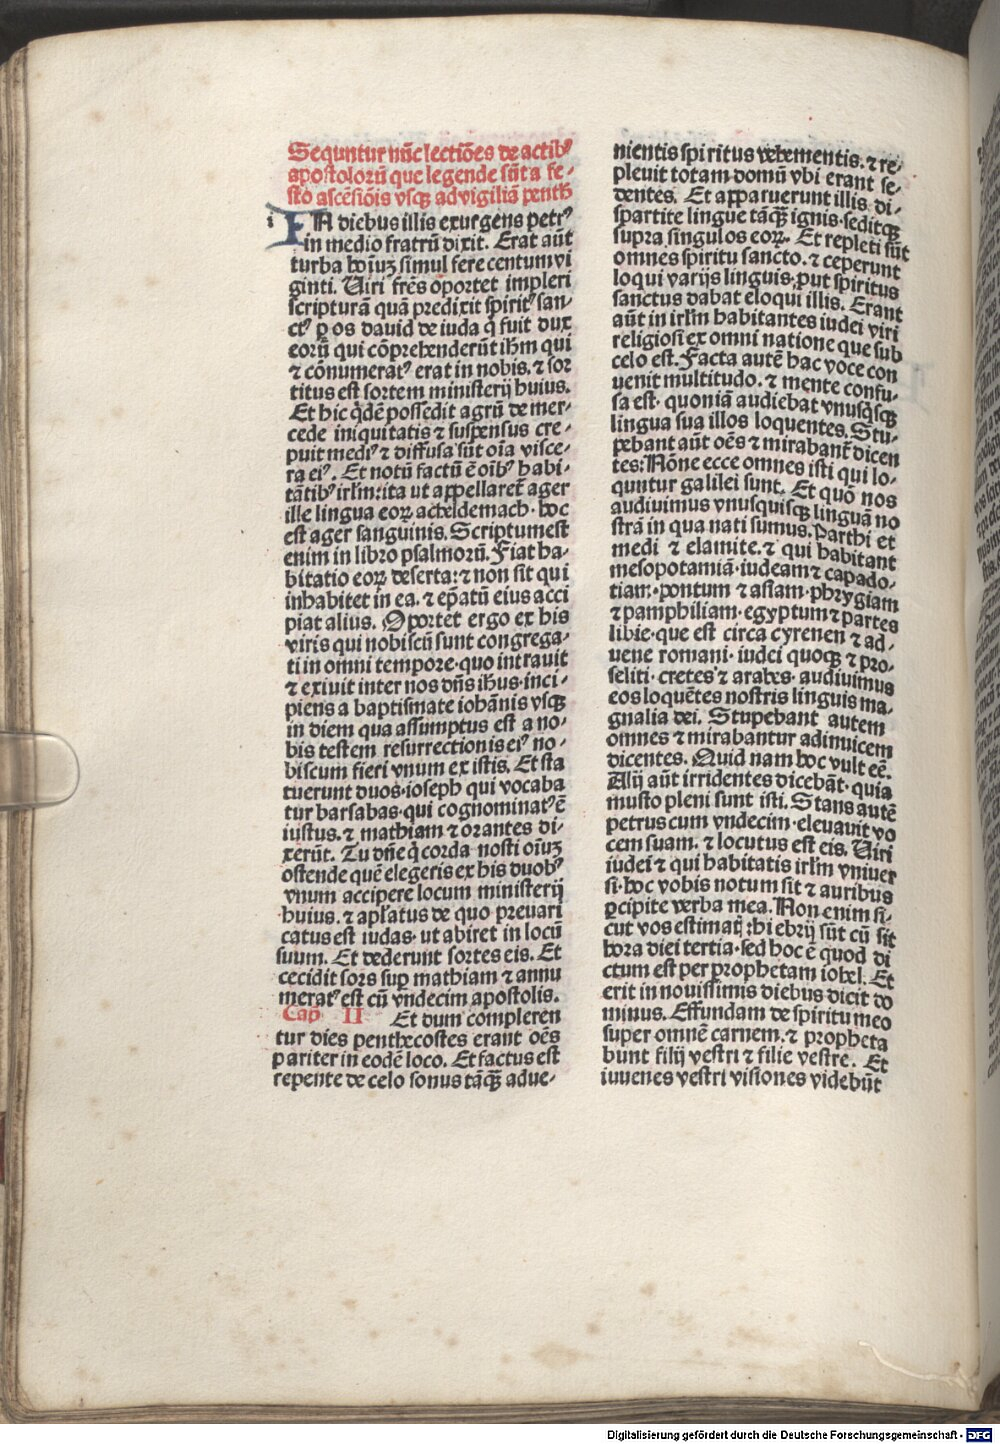 Sequntur nūc lectiōes de actibꝰ
apostolorū que legende sūt a fe-
sto ascēsiōis vsqꝫ ad vigiliā penth̄
i
IN diebus illis exurgens petrꝰ
in medio fratrū dixit. Erat aūt
turba hoīuꝫ simul fere centum vi
ginti. Uiri fr̄es oportet impleri
scripturā quā predixit spiritꝰ san-
ctꝰ ꝑ os david de iuda q̇ fuit dux
eorū qui cōprehenderūt ih̄m qui
⁊ cōnumeratꝰ erat in nobis. ⁊ sor
titus est sortem ministerij huius.
Et hic q̇dē possedit agrū de mer-
cede iniquitatis ⁊ suspensus cre-
puit mediꝰ ⁊ diffusa sūt oīa visce-
ra eiꝰ. Et notū factū ē oībꝰ habi-
tātibꝰ irl̄m: ita ut appellaret̄ ager
ille lingua eoꝝ acheldemach. hoc
est ager sanguinis. Scriptum est
enim in libro psalmorū. Fiat ha-
bitatio eoꝝ deserta: ⁊ non sit qui
inhabitet in ea. ⁊ ep̄atū eius acci
piat alius. Oportet ergo ex his
viris qui nobiscū sunt congrega-
ti in omni tempore. quo intrauit
⁊ exivit inter nos dn̄s ih̄us. inci-
piens a baptismate ioh̄anis vsqꝫ
in diem qua assumptus est a no-
bis testem resurrectionis eiꝰ no-
biscum fieri vnum ex istis. Et sta
tuerunt duos. ioseph qui vocaba
tur barsabas. qui cognominatꝰ ē
iustus. ⁊ mathiam ⁊ orantes di-
xerūt. Tu dn̄e q̇ corda nosti oīuꝫ
ostende quē elegeris ex his duobꝰ
vnum accipere locum ministerij
huius. ⁊ apl̄atus de quo prevari
catus est iudas. ut abiret in locū
suum. Et dederunt sortes eis. Et
cecidit sors suꝑ mathiam ⁊ annu
meratꝰ est cū vndecim apostolis.
Cap̄ II Et dum compleren
tur dies penthecostes erant oēs
pariter in eodē loco. Et factus est
repente de celo sonus tāqꝫ̄ adue-
nientis spiritus vehementis. ⁊ re-
pleuit totam domū vbi erant se-
dentes. Et apparuerunt illis di-
spartite lingue tāqꝫ̄ ignis. seditqꝫ
supra singulos eoꝝ. Et repleti sūt
omnes spiritu sancto. ⁊ ceperunt
loqui varijs linguis. put spiritus
sanctus dabat eloqui illis. Erant
aūt in irl̄m habitantes iudei viri
religiosi ex omni natione que sub
celo est. Facta autē hac voce con
uenit multitudo. ⁊ mente confu-
sa est. quoniā audiebat vnusq̇sqꝫ
lingua sua illos loquentes. Stu-
pebant aūt oēs ⁊ mirabant̄ dicen
tes: Nōne ecce omnes isti qui lo-
quntur galilei sunt. Et quō nos
audiuimus vnusquisqꝫ linguā no
strā in qua nati sumus. Parthi et
medi ⁊ elamite. ⁊ qui habitant
mesopotamiā. iudeam ⁊ capado-
tiam. pontum ⁊ asiam. phrygiam
⁊ pamphiliam. egyptum ⁊ partes
libie. que est circa cyrenen ⁊ ad-
uene romani. iudei quoqꝫ ⁊ pro-
seliti. cretes ⁊ arabes. audiuimus
eos loquētes nostris linguis ma-
gnalia dei. Stupebant autem
omnes ⁊ mirabantur adinuicem
dicentes. Quid nam hoc vult eē.
Alij aūt irridentes dicebāt. quia
musto pleni sunt isti. Stans autē
petrus cum vndecim. eleuauit vo
cem suam. ⁊ locutus est eis. Uiri
iudei ⁊ qui habitatis irl̄m vniuer
si. hoc vobis notum sit ⁊ auribus
ꝑcipite verba mea. Non enim si-
cut vos estimatis: hi ebrij sūt cū sit
hora diei tertia. sed hoc ē quod di
ctum est per prophetam iohel. Et
erit in nouissimis diebus dicit do
minus. Effundam de spiritu meo
super omnē carnem. ⁊ propheta
bunt filij vestri ⁊ filie vestre. Et
iuuenes vestri visiones videbūt
Digitalisierung gefördert durch die Deutsche Forschungsgemeinschaft - DFG